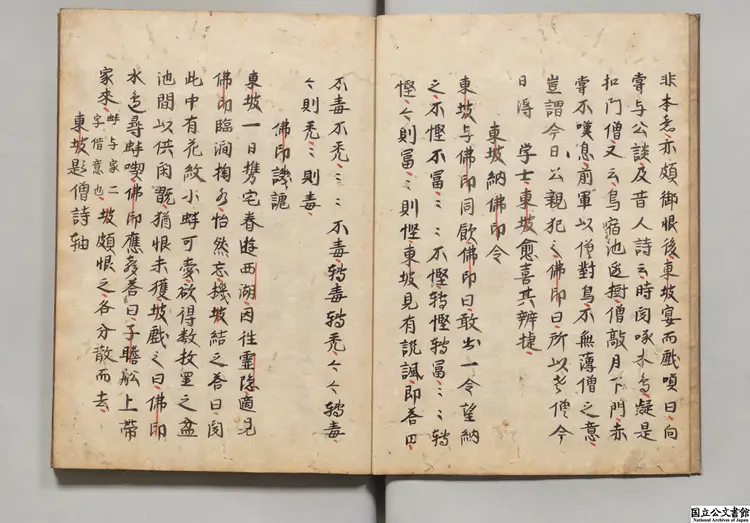 非本意亦頗御恨後東坡宴而戲嘲曰向
嘗与公談及昔人詩云時聞啄木鳥凝是
扣門僧又云鳥宿池邊樹僧敲月下門未
嘗不嘆息前輩以僧對鳥不無薄僧之意
豈謂今日公親犯之佛印曰所以老僧今
日得 学士東坡愈喜其辨捷
東坡納佛印令
東坡与佛印同飲佛印曰敢出一令望納
之不慳不冨〻〻不慳轉慳轉冨〻〻轉
慳〻則冨〻則慳東坡見有譏諷即荅曰
不毒不禿〻〻不毒轉毒轉禿〻〻轉毒
〻則禿〻則毒
佛印譏謔
東坡一日携宅眷遊西湖因往靈隐適見
佛印臨澗掬水怡然忘機坡結之荅曰閔
此中有花紋小蚌可愛欲得数枚置之盆
池間以供閑翫猶恨未獲坡戲之曰佛印
水邊尋蚌喫佛印應聲荅曰子瞻舩上帶
家來 蚌与家二字借意也 坡頗恨之各分散而去
東坡題僧詩軸
国立公文書館
National Archives of Japan